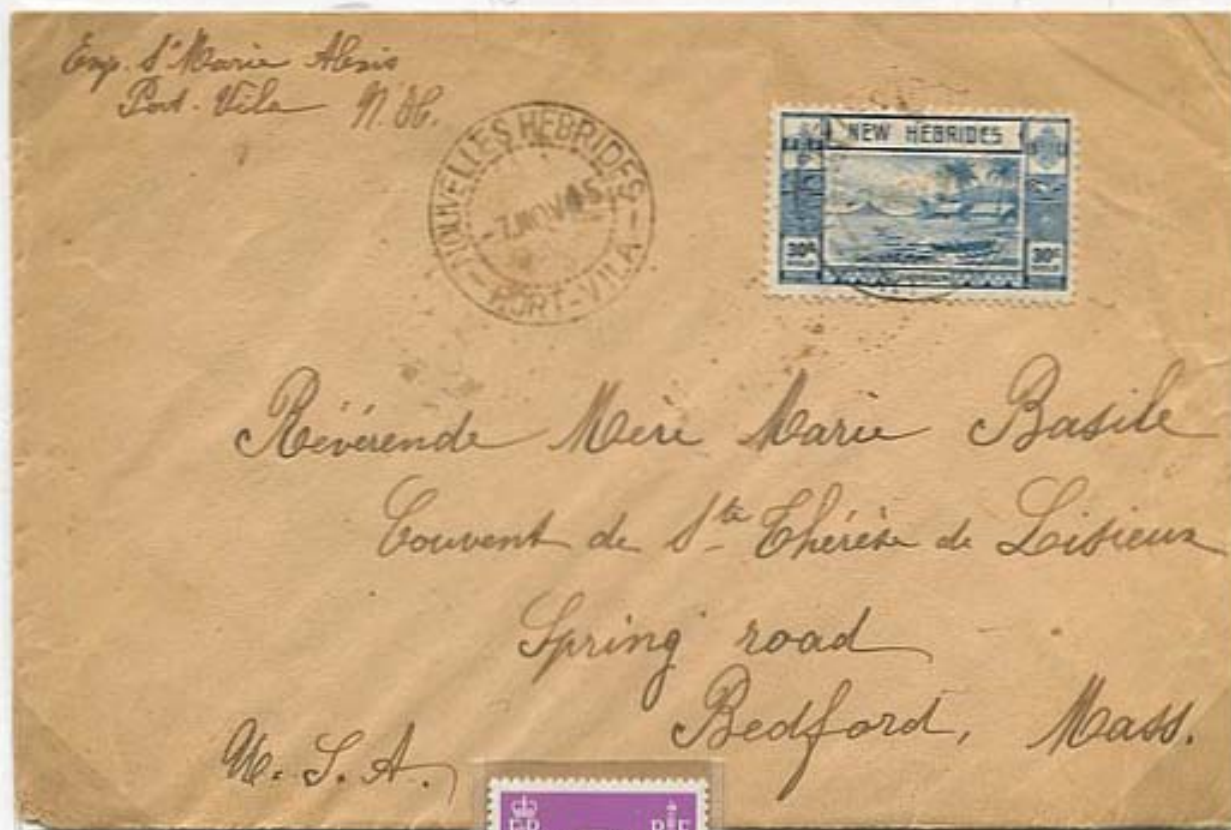 Exp. Sr Marie Alexis
Port-Vila N. H.
NOUVELLES HEBRIDES
-7 NOV 45
PORT-VILA
NEW HEBRIDES
30c 30c
Révérende Mère Marie Basile
Couvent de Ste Thérèse de Lisieux
Spring road
Bedford, Mass.
U. S. A.
ER RF